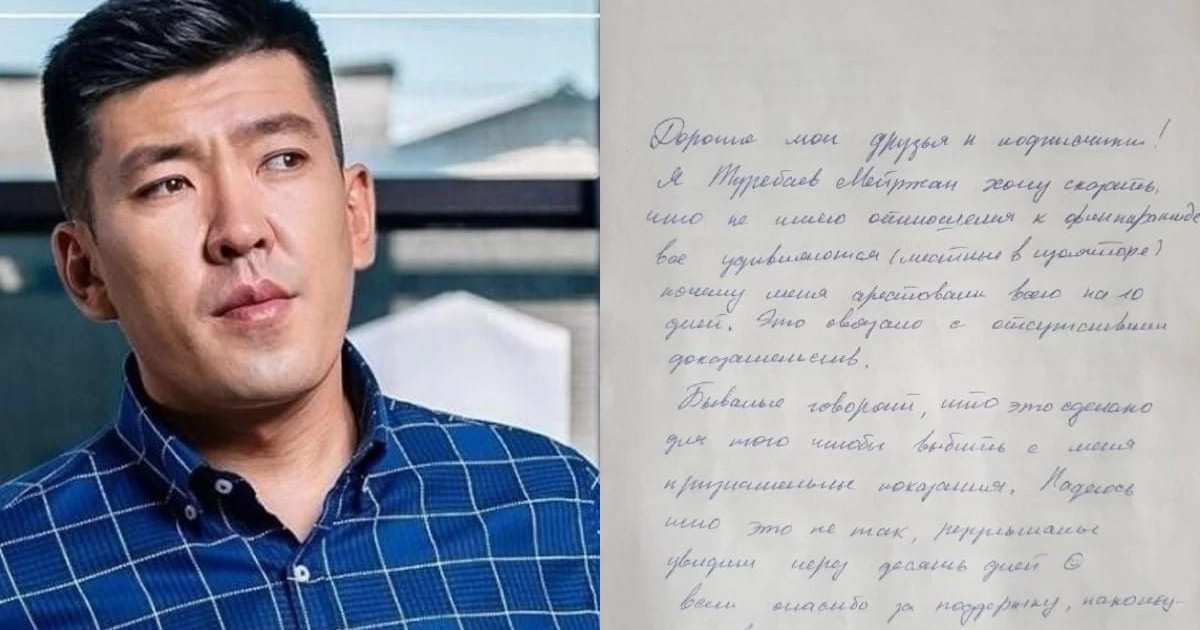 Дорогие мои друзья и подписчики!
Я Туребаев Мейржан хочу сказать,
что не имею отношения к финпирамиде
все удивляются (местные в изоляторе)
почему меня арестовали всего на 10
дней. Это связано с отсутствием
доказательств.
Бывалые говорят, что это сделано
для того чтобы выбить с меня
признательные показания. Надеюсь
что это не так, результаты
увидим через десять дней ☺
всем спасибо за поддержку, наконец-